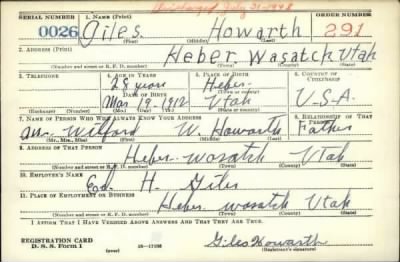 Discharged July 31-1948
SERIAL NUMBER 1. NAME (Print) ORDER NUMBER
0026 Giles Howarth 291
(First) (Middle) (Last)
2. ADDRESS (Print)
Heber Wasatch Utah
(Number and street or R. F. D. number) (Town) (County) (State)
3. TELEPHONE 4. AGE IN YEARS 5. PLACE OF BIRTH 6. COUNTRY OF CITIZENSHIP
28 years Heber
DATE OF BIRTH (Town or county)
Mar 19-1912 Utah U.S.A.
(Exchange) (Number) (Mo.) (Day) (Yr.) (State or country)
7. NAME OF PERSON WHO WILL ALWAYS KNOW YOUR ADDRESS 8. RELATIONSHIP OF THAT PERSON
Mr. Wilford W. Howarth Father
(Mr., Mrs., Miss) (First) (Middle) (Last)
9. ADDRESS OF THAT PERSON
Heber wasatch Utah
(Number and street or R. F. D. number) (Town) (County) (State)
10. EMPLOYER'S NAME
Ed. H. Giles
11. PLACE OF EMPLOYMENT OR BUSINESS
Heber wasatch Utah
(Number and street or R. F. D. number) (Town) (County) (State)
I AFFIRM THAT I HAVE VERIFIED ABOVE ANSWERS AND THAT THEY ARE TRUE.
REGISTRATION CARD
D. S. S. Form 1 (over) Giles Howarth
(Registrant's signature)